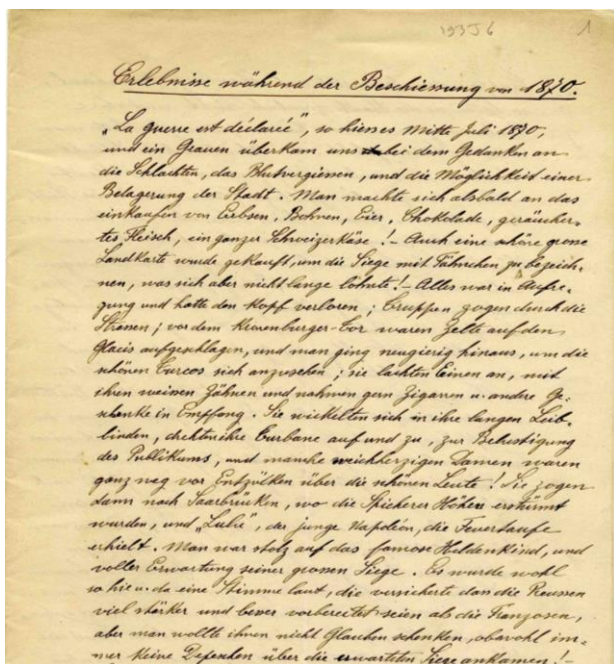 193J6
1
Erlebnisse während der Beschiessung von 1870.
„La guerre est déclarée", so hiess es Mitte Juli 1870,
und ein Grauen überkam uns bei dem Gedanken an
die Schlachten, das Blutvergiessen, und die Möglichkeit einer
Belagerung der Stadt. Man machte sich alsbald an das
einkaufen von Erbsen, Bohnen, Eier, Chokolade, geräucher-
tes Fleisch, ein ganzer Schweizerkäse! – Auch eine schöne grosse
Landkarte wurde gekauft, um die Siege mit Fähnchen zu bezeich-
nen, was sich aber nicht lange lohnte! – Alles war in Aufre-
gung und hatte den Kopf verloren; Truppen zogen durch die
Strassen; vor dem Kronenburger-Tor waren Zelte auf den
Glacis aufgeschlagen, und man ging neugierig hinaus, um die
schönen Turcos sich anzusehen; sie lachten Einen an, mit
ihren weissen Zähnen und nahmen gern Zigarren u. andere Ge-
schenke in Empfang. Sie wickelten sich in ihre langen Leib-
binden, drehten ihre Turbane auf und zu, zur Belustigung
des Publikums, und manche weichherzigen Damen waren
ganz weg vor Entzücken über die schönen Leute! Sie zogen
dann nach Saarbrücken, wo die Spicherer Höhen erstürmt
wurden, und „Lulu", der junge Napoléon, die Feuertaufe
erhielt. Man war stolz auf das famose Heldenkind, und
voller Erwartung seiner grossen Siege. Es wurde wohl
so hie u. da eine Stimme laut, die versicherte dass die Preussen
viel stärker und besser vorbereitet seien als die Franzosen,
aber man wollte ihnen nicht Glauben schenken, obwohl im-
mer keine Depeschen über die erwarteten Siege ankamen! –